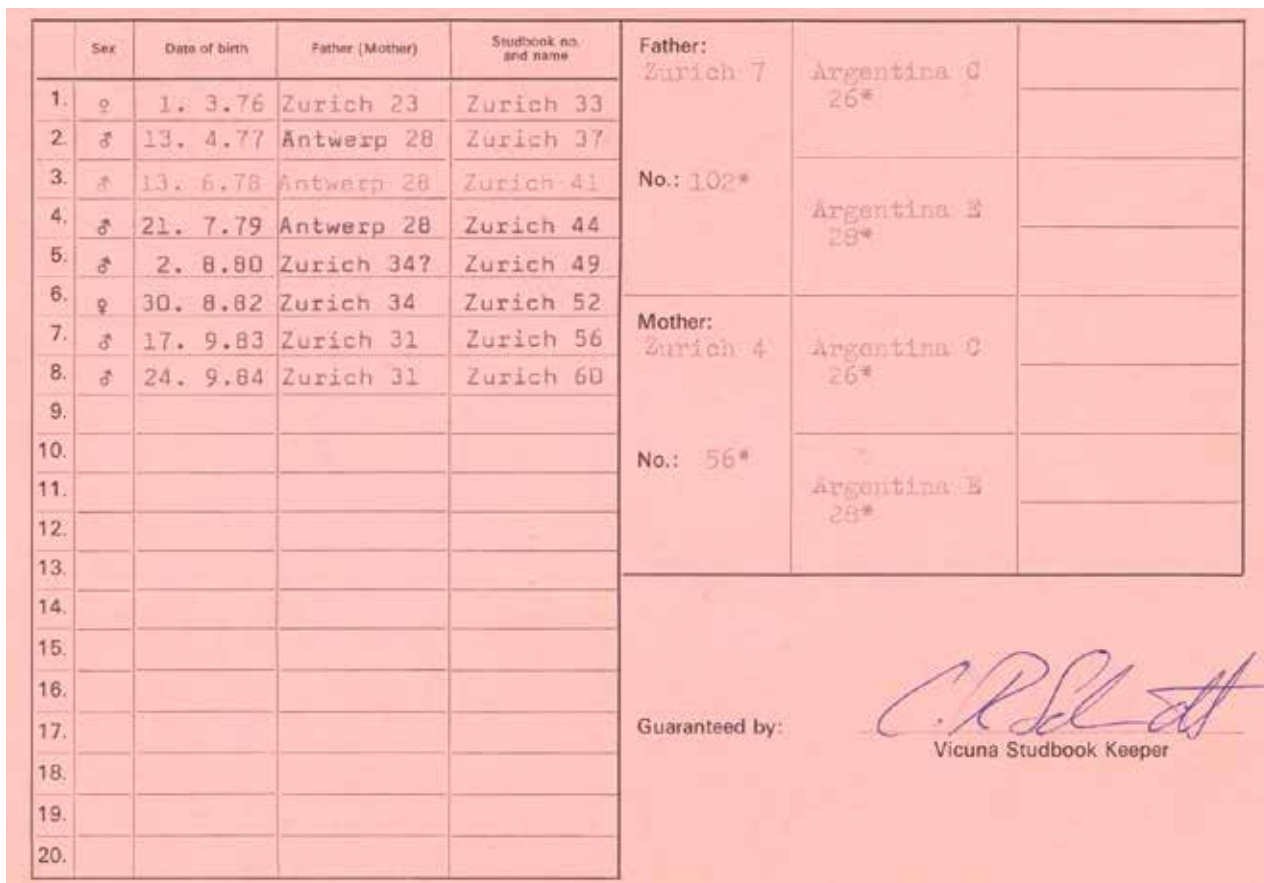 Sex Date of birth Father (Mother) Studbook no. and name
1. ♀ 1. 3.76 Zurich 23 Zurich 33
2. ♂ 13. 4.77 Antwerp 28 Zurich 37
3. ♂ 13. 6.78 Antwerp 28 Zurich 41
4. ♂ 21. 7.79 Antwerp 28 Zurich 44
5. ♂ 2. 8.80 Zurich 34? Zurich 49
6. ♀ 30. 8.82 Zurich 34 Zurich 52
7. ♂ 17. 9.83 Zurich 31 Zurich 56
8. ♂ 24. 9.84 Zurich 31 Zurich 60
9.
10.
11.
12.
13.
14.
15.
16.
17.
18.
19.
20.
Father:
Zurich 7
No.: 102*
Argentina C
26*
Argentina E
28*
Mother:
Zurich 4
No.: 56*
Argentina C
26*
Argentina E
28*
Guaranteed by:
C. R. Schmidt
Vicuna Studbook Keeper